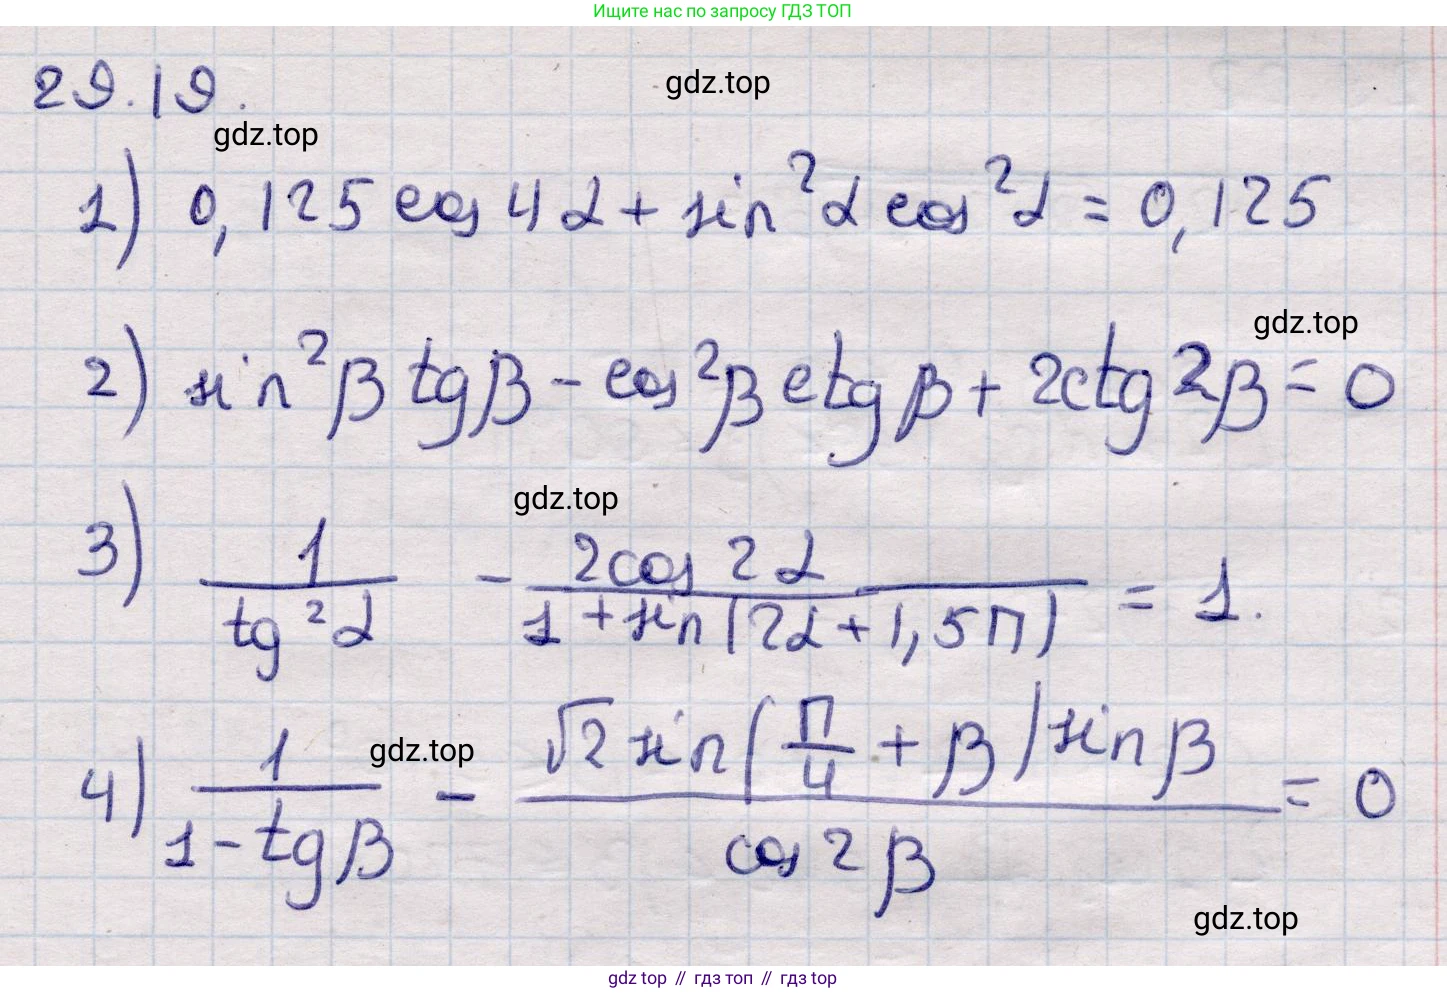 Ищите нас по запросу ГДЗ ТОП
29.19.
gdz.top
gdz.top
1) 0,125 cos 4α + sin²α cos²α = 0,125
gdz.top
2) sin²β tgβ - cos²β ctgβ + 2ctg 2β = 0
gdz.top
3) 1/tg²α - 2cos 2α/(1 + sin(2α + 1,5π)) = 1.
gdz.top
4) 1/(1 - tgβ) - √2 sin(π/4 + β) sinβ/cos 2β = 0
gdz.top
gdz top // гдз топ // гдз top